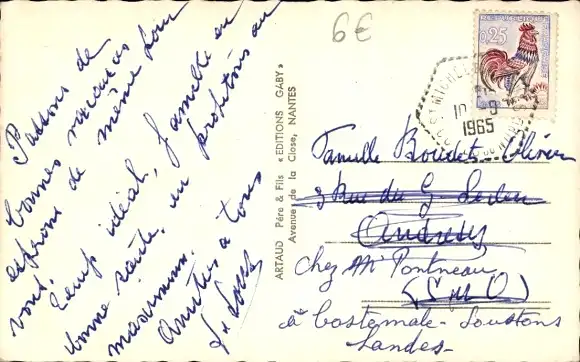 Passons de
bonnes vacances
espérons de même pour
vous. Famille en
Temps idéal,
bonne santé, en profitons au
maximum.
Amitiés à tous
6€
0,25
10 - 9
1965
ARTAUD Père & Fils «EDITIONS GABY»
Avenue de la Close, NANTES
Famille Boudet Olivier
3 Rue du G.
Andrésy
chez Mr Pontneau
(S et O)
à Costemale - Soustons
Landes -